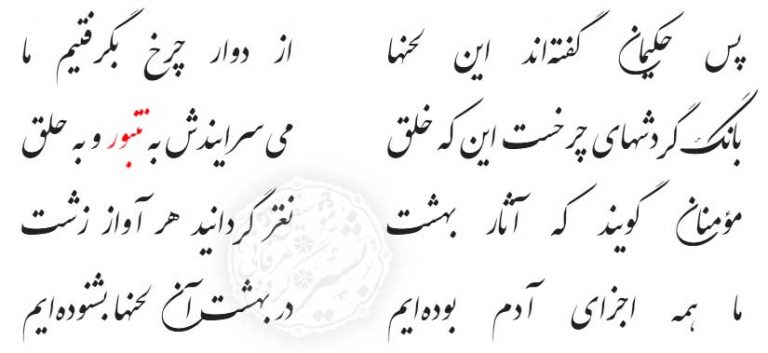 پس حکیمان گفته‌اند این لحنها از دوار چرخ بگرفتیم ما
بانگ گردشهای چرخست این که خلق می‌سرایندش به تنبور و به حلق
مؤمنان گویند که آثار بهشت نغز گردانید هر آواز زشت
ما همه اجزای آدم بوده‌ایم در بهشت آن لحنها بشنوده‌ایم